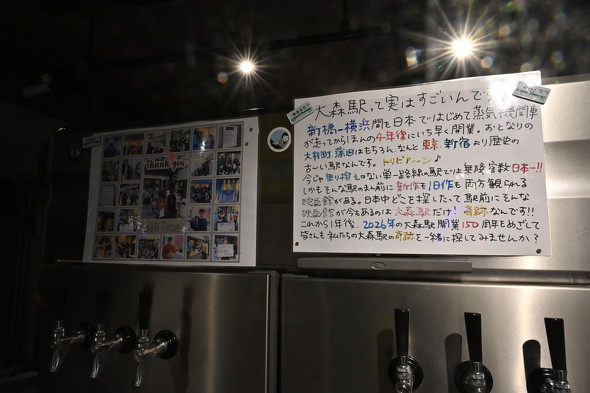 thank you
大森駅って実はすごいんで
新橋ー横浜間を日本ではじめて蒸気機関車
が走ってからほんの4年後にいち早く開業。おとなりの
大井町、蒲田はもちろん、なんと東京、新宿より歴史の
古〜い駅なんです。トリビア〜ン♪
今じゃ乗り換えのない単一路線の駅では乗降客数日本一!!
しかもそんな駅のまん前に新作も旧作も両方観られる
映画館がある。日本中どこを探したって駅前にそんな
映画館が今もあるのは大森駅だけ!奇跡なんです!!
これから1年後、2026年の大森駅開業150周年をめざして
皆さんも私たちの大森駅の奇跡を一緒に探してみませんか?